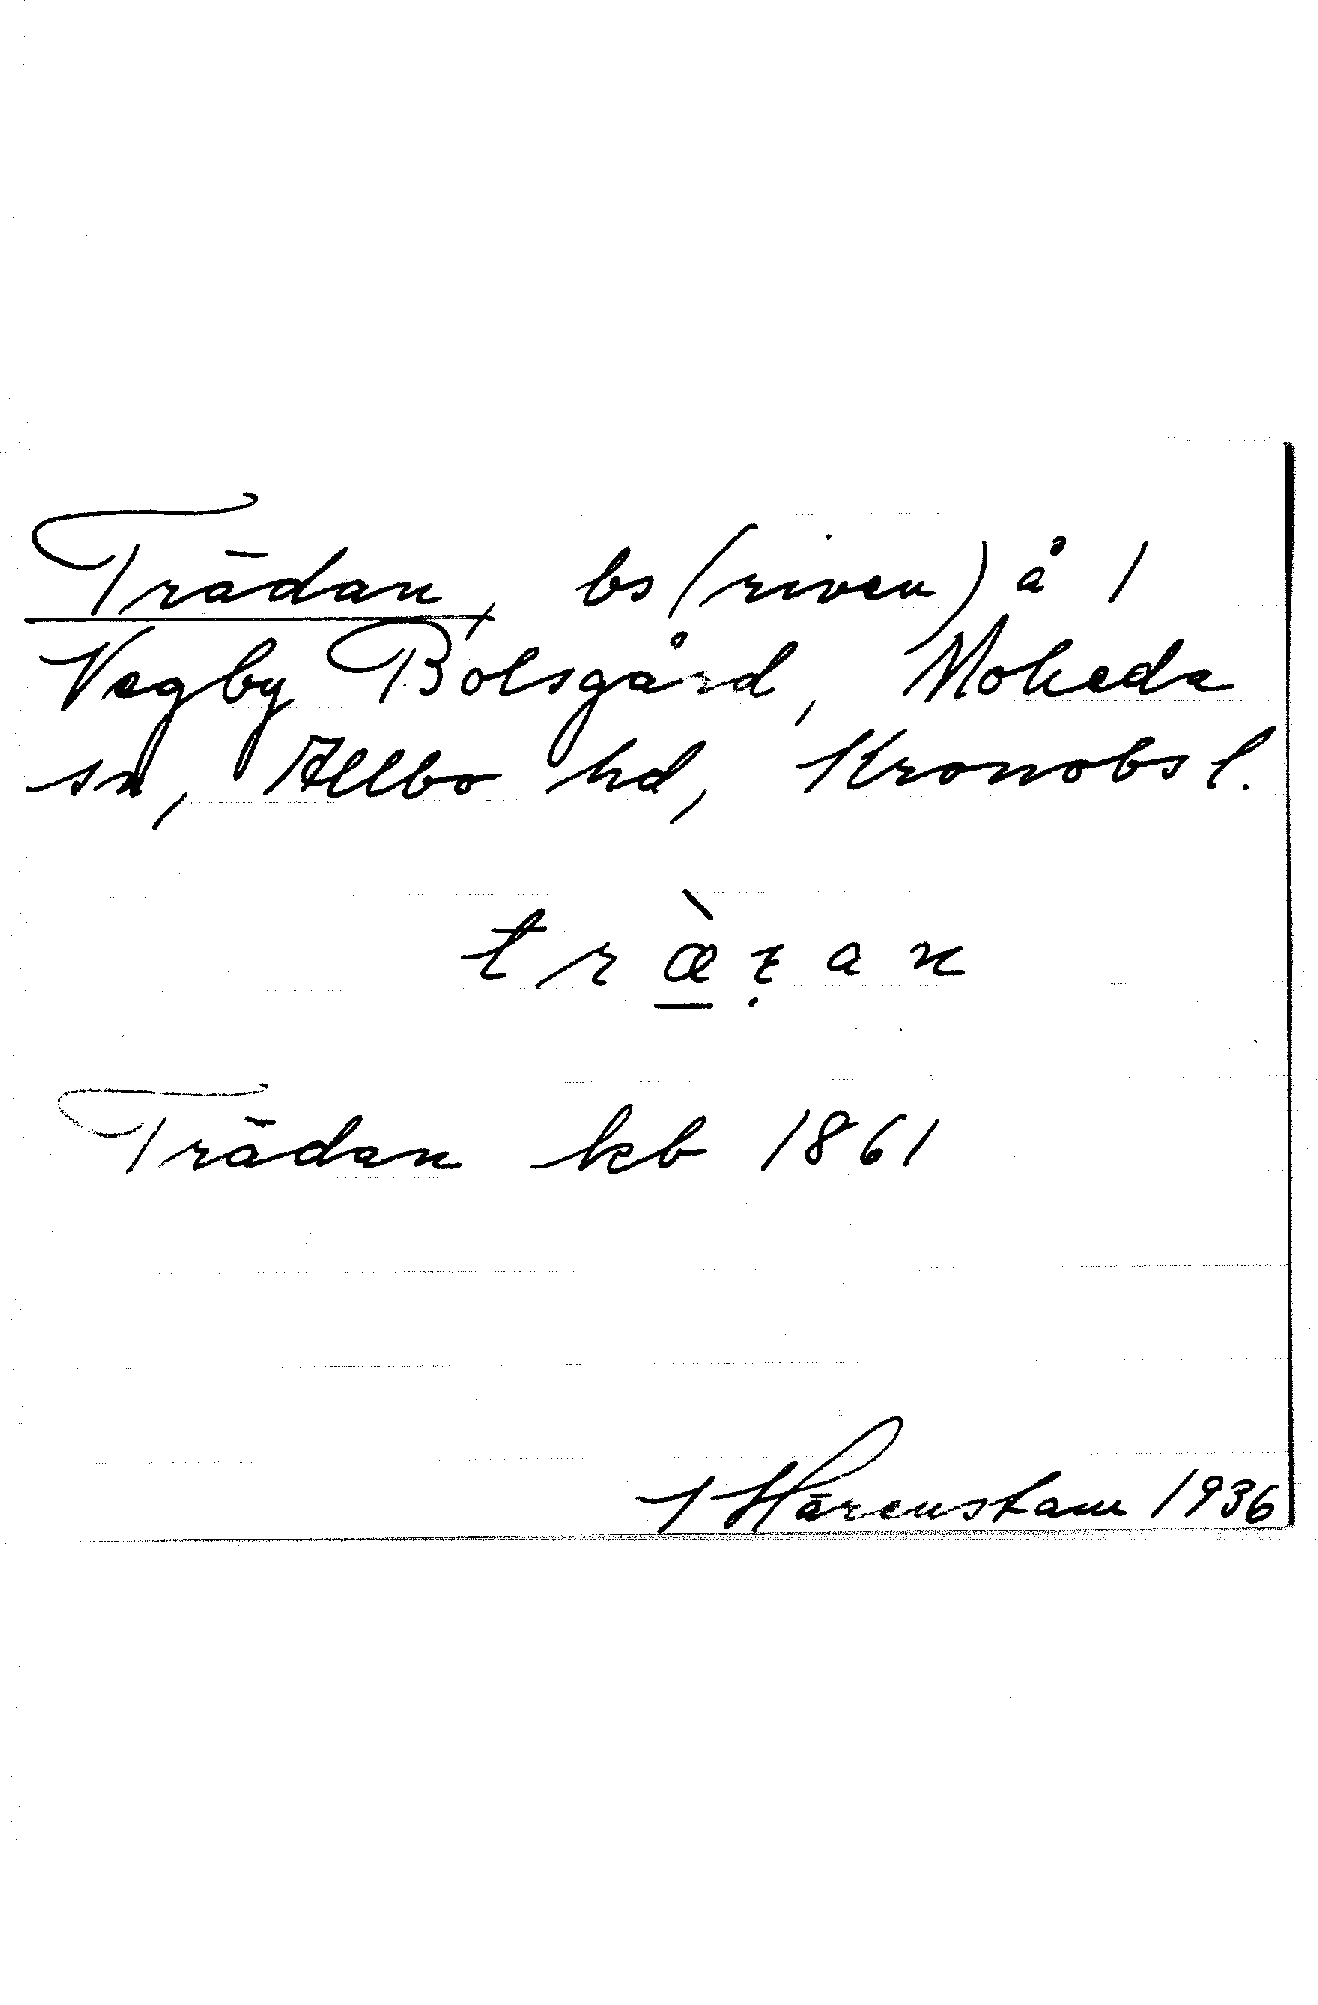 Trädan, bs (riven) å 1
Vegby Bolsgård, Moheda
sn, Allbo hd, Kronobs l.
træ̠̀ẓan
Trädan kb 1861
J Härenstam 1936